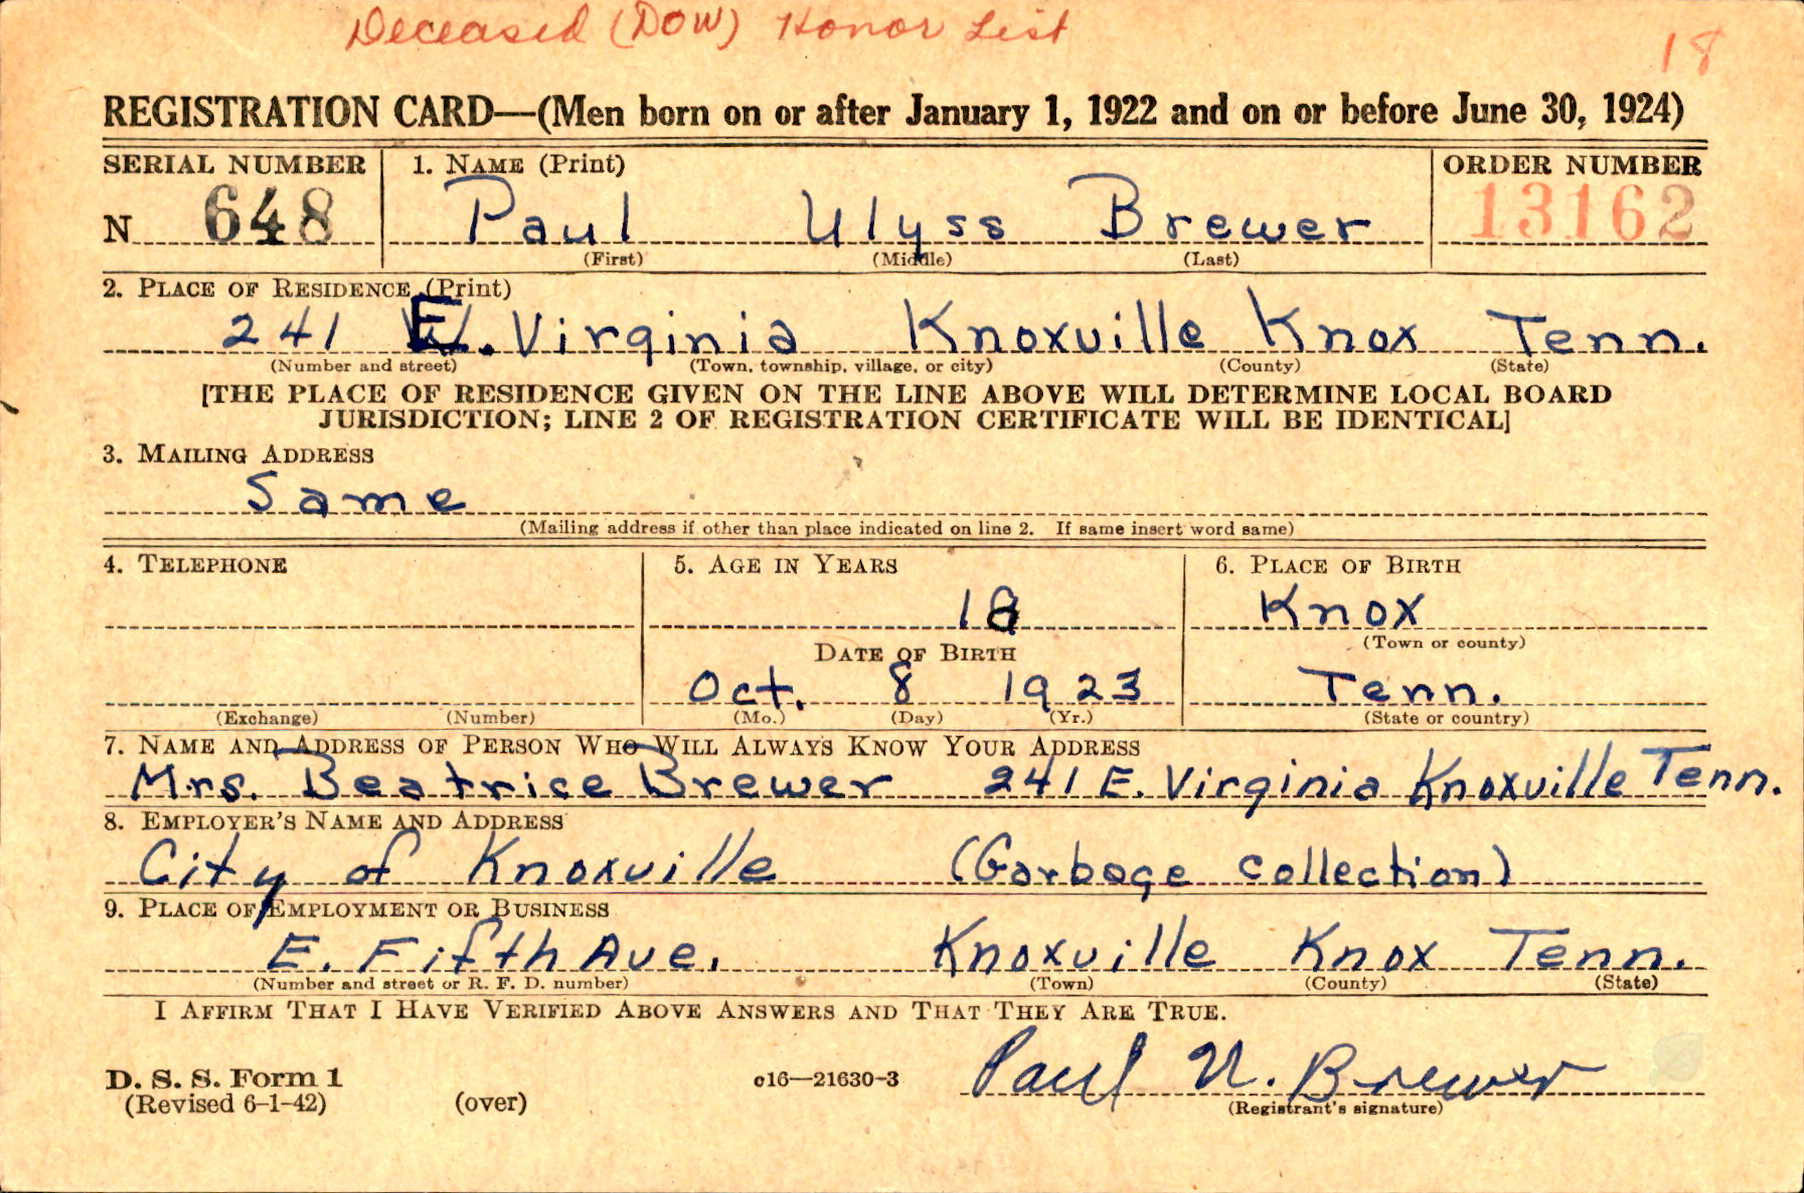 Deceased (DOW) Honor List
18
REGISTRATION CARD—(Men born on or after January 1, 1922 and on or before June 30, 1924)
SERIAL NUMBER 1. NAME (Print) ORDER NUMBER
N 648 Paul Ulyss Brewer 13162
(First) (Middle) (Last)
2. PLACE OF RESIDENCE (Print)
241 E. Virginia Knoxville Knox Tenn.
(Number and street) (Town, township, village, or city) (County) (State)
[THE PLACE OF RESIDENCE GIVEN ON THE LINE ABOVE WILL DETERMINE LOCAL BOARD
JURISDICTION; LINE 2 OF REGISTRATION CERTIFICATE WILL BE IDENTICAL]
3. MAILING ADDRESS
Same
(Mailing address if other than place indicated on line 2. If same insert word same)
4. TELEPHONE 5. AGE IN YEARS 6. PLACE OF BIRTH
18 Knox
(Town or county)
DATE OF BIRTH
Oct. 8 1923 Tenn.
(Exchange) (Number) (Mo.) (Day) (Yr.) (State or country)
7. NAME AND ADDRESS OF PERSON WHO WILL ALWAYS KNOW YOUR ADDRESS
Mrs. Beatrice Brewer 241 E. Virginia Knoxville Tenn.
8. EMPLOYER'S NAME AND ADDRESS
City of Knoxville (Garbage collection)
9. PLACE OF EMPLOYMENT OR BUSINESS
E. Fifth Ave. Knoxville Knox Tenn.
(Number and street or R. F. D. number) (Town) (County) (State)
I AFFIRM THAT I HAVE VERIFIED ABOVE ANSWERS AND THAT THEY ARE TRUE.
D. S. S. Form 1
(Revised 6-1-42) (over) c16—21630-3 Paul U. Brewer
(Registrant's signature)